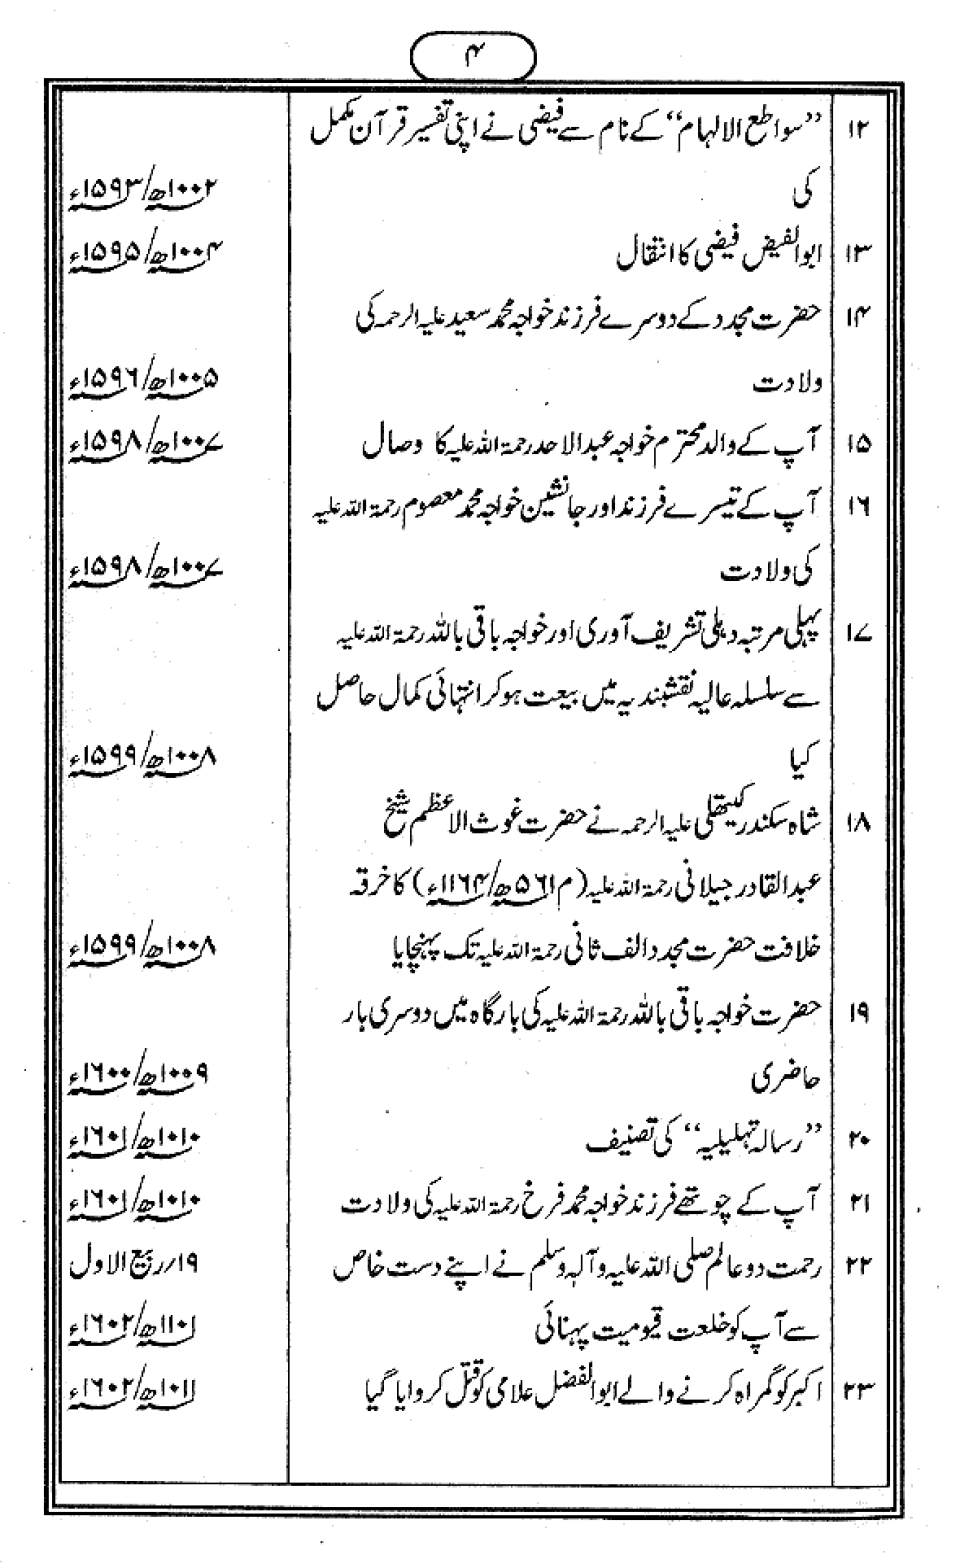 ۴
۱۲ ’’سواطع الالہام‘‘ کے نام سے فیضی نے اپنی تفسیر قرآن مکمل
کی ۱۰۰۲ھ/۱۵۹۳ء
۱۳ ابوالفیض فیضی کا انتقال ۱۰۰۴ھ/۱۵۹۵ء
۱۴ حضرت مجدد کے دوسرے فرزند خواجہ محمد سعید علیہ الرحمہ کی
ولادت ۱۰۰۵ھ/۱۵۹۶ء
۱۵ آپ کے والد محترم خواجہ عبدالاحد رحمۃ اللہ علیہ کا وصال ۱۰۰۷ھ/۱۵۹۸ء
۱۶ آپ کے تیسرے فرزند اور جانشین خواجہ محمد معصوم رحمۃ اللہ علیہ
کی ولادت ۱۰۰۷ھ/۱۵۹۸ء
۱۷ پہلی مرتبہ دہلی تشریف آوری اور خواجہ باقی باللہ رحمۃ اللہ علیہ
سے سلسلہ عالیہ نقشبندیہ میں بیعت ہو کر انتہائی کمال حاصل
کیا ۱۰۰۸ھ/۱۵۹۹ء
۱۸ شاہ سکندر کیتھلی علیہ الرحمہ نے حضرت غوث الاعظم شیخ
عبدالقادر جیلانی رحمۃ اللہ علیہ (م۵۶۱ھ/۱۱۶۴ء) کا خرقہ
خلافت حضرت مجدد الف ثانی رحمۃ اللہ علیہ تک پہنچایا ۱۰۰۸ھ/۱۵۹۹ء
۱۹ حضرت خواجہ باقی باللہ رحمۃ اللہ علیہ کی بارگاہ میں دوسری بار
حاضری ۱۰۰۹ھ/۱۶۰۰ء
۲۰ ’’رسالہ تہلیلیہ‘‘ کی تصنیف ۱۰۱۰ھ/۱۶۰۱ء
۲۱ آپ کے چوتھے فرزند خواجہ محمد فرخ رحمۃ اللہ علیہ کی ولادت ۱۰۱۰ھ/۱۶۰۱ء
۲۲ رحمت دوعالم صلی اللہ علیہ وآلہٖ وسلم نے اپنے دست خاص ۱۹/ربیع الاول
سے آپ کو خلعت قیومیت پہنائی ۱۱۰۱ھ/۱۶۰۲ء
۲۳ اکبر کو گمراہ کرنے والے ابوالفضل علامی کو قتل کروایا گیا ۱۰۱۱ھ/۱۶۰۲ء